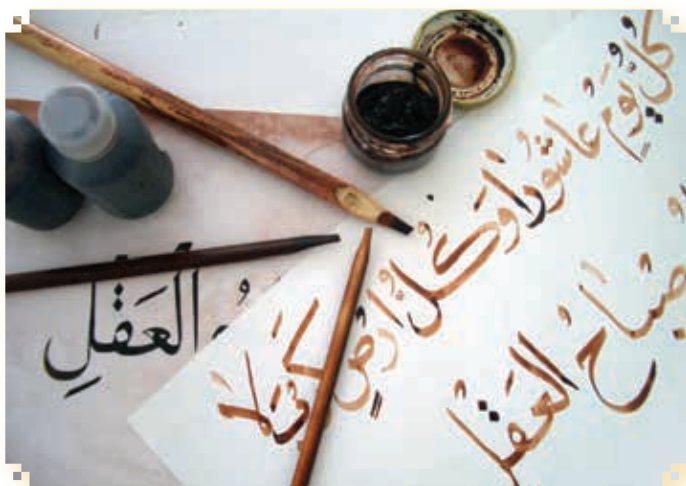 كُلُّ يَوْمٍ عَاشُورا وَكُلُّ أَرْضٍ كَربَلا
صْبَاحُ العَقْلِ
العَقْلِ